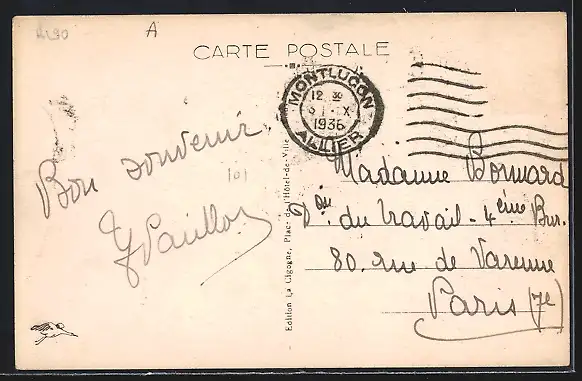 A
CARTE POSTALE
MONTLUCON
12 30
1936
ALLIER
Bon souvenir
101
Edition La Cigogne, Place de l'Hôtel-de-Ville
Madame Bonnard
Don du travail - 4ème Bur.
80. rue de Varenne
Paris (7e)